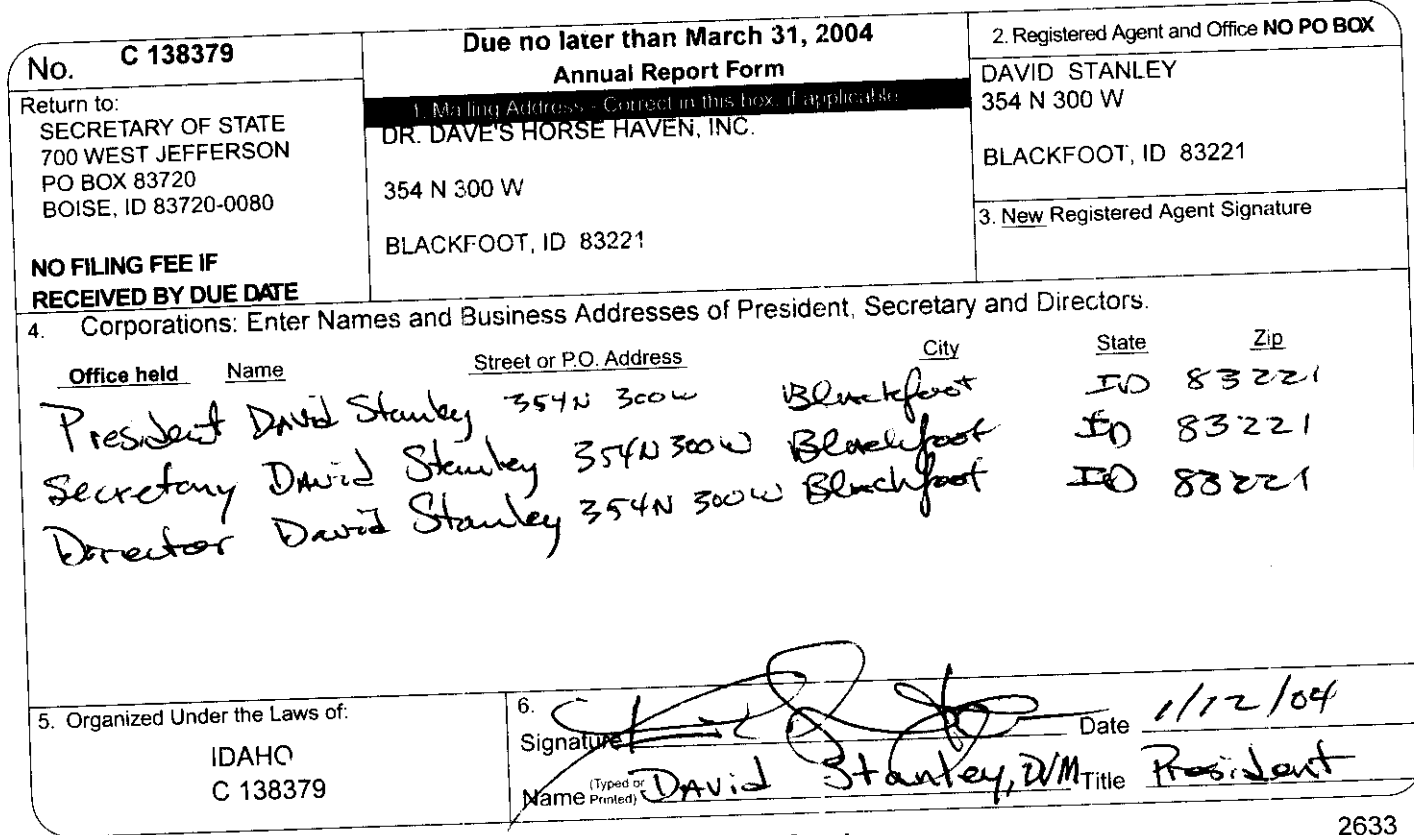 No. C 138379
Return to:
SECRETARY OF STATE
700 WEST JEFFERSON
PO BOX 83720
BOISE, ID 83720-0080
NO FILING FEE IF
RECEIVED BY DUE DATE
Due no later than March 31, 2004
Annual Report Form
1. Mailing Address - Correct in this box, if applicable
DR. DAVE'S HORSE HAVEN, INC.
354 N 300 W
BLACKFOOT, ID 83221
2. Registered Agent and Office NO PO BOX
DAVID STANLEY
354 N 300 W
BLACKFOOT, ID 83221
3. New Registered Agent Signature
4. Corporations: Enter Names and Business Addresses of President, Secretary and Directors.
Office held Name Street or P.O. Address City State Zip
President David Stanley 354N 300W Blackfoot ID 83221
Secretary David Stanley 354N 300W Blackfoot ID 83221
Director David Stanley 354N 300W Blackfoot ID 83221
5. Organized Under the Laws of:
IDAHO
C 138379
6.
Signature Date 1/12/04
Name (Typed or Printed) David Stanley, DVM Title President
2633